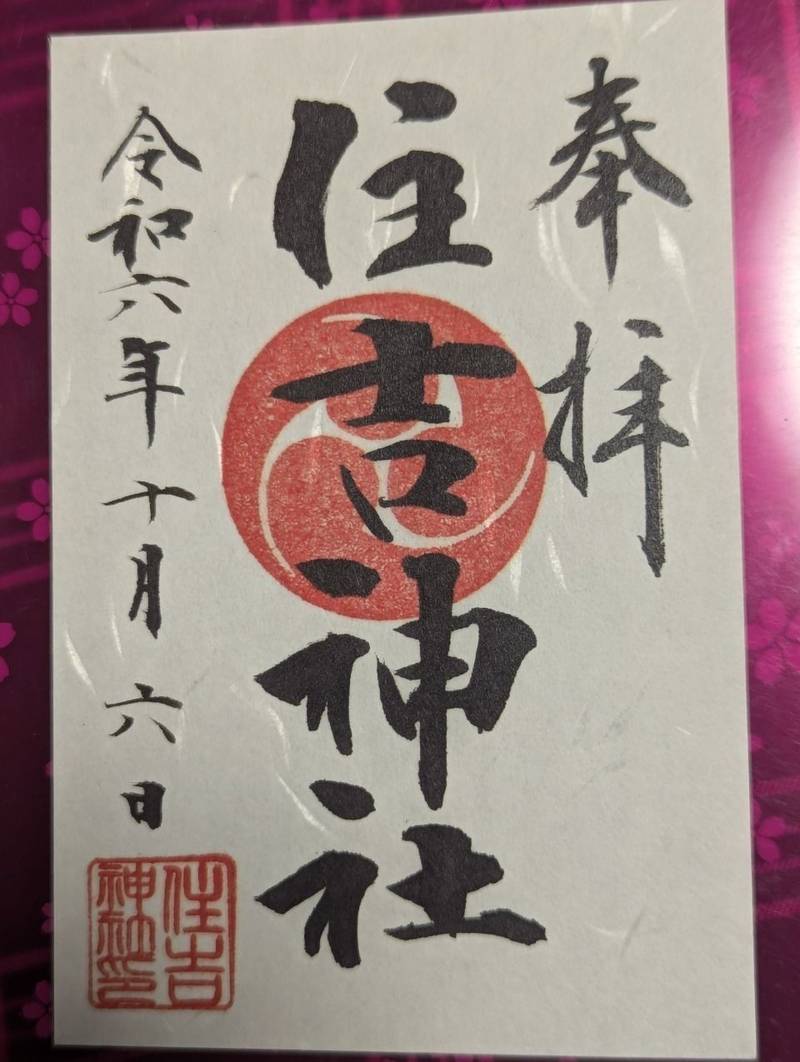 奉拝
住吉神社
令和六年十月六日
住吉
神社印